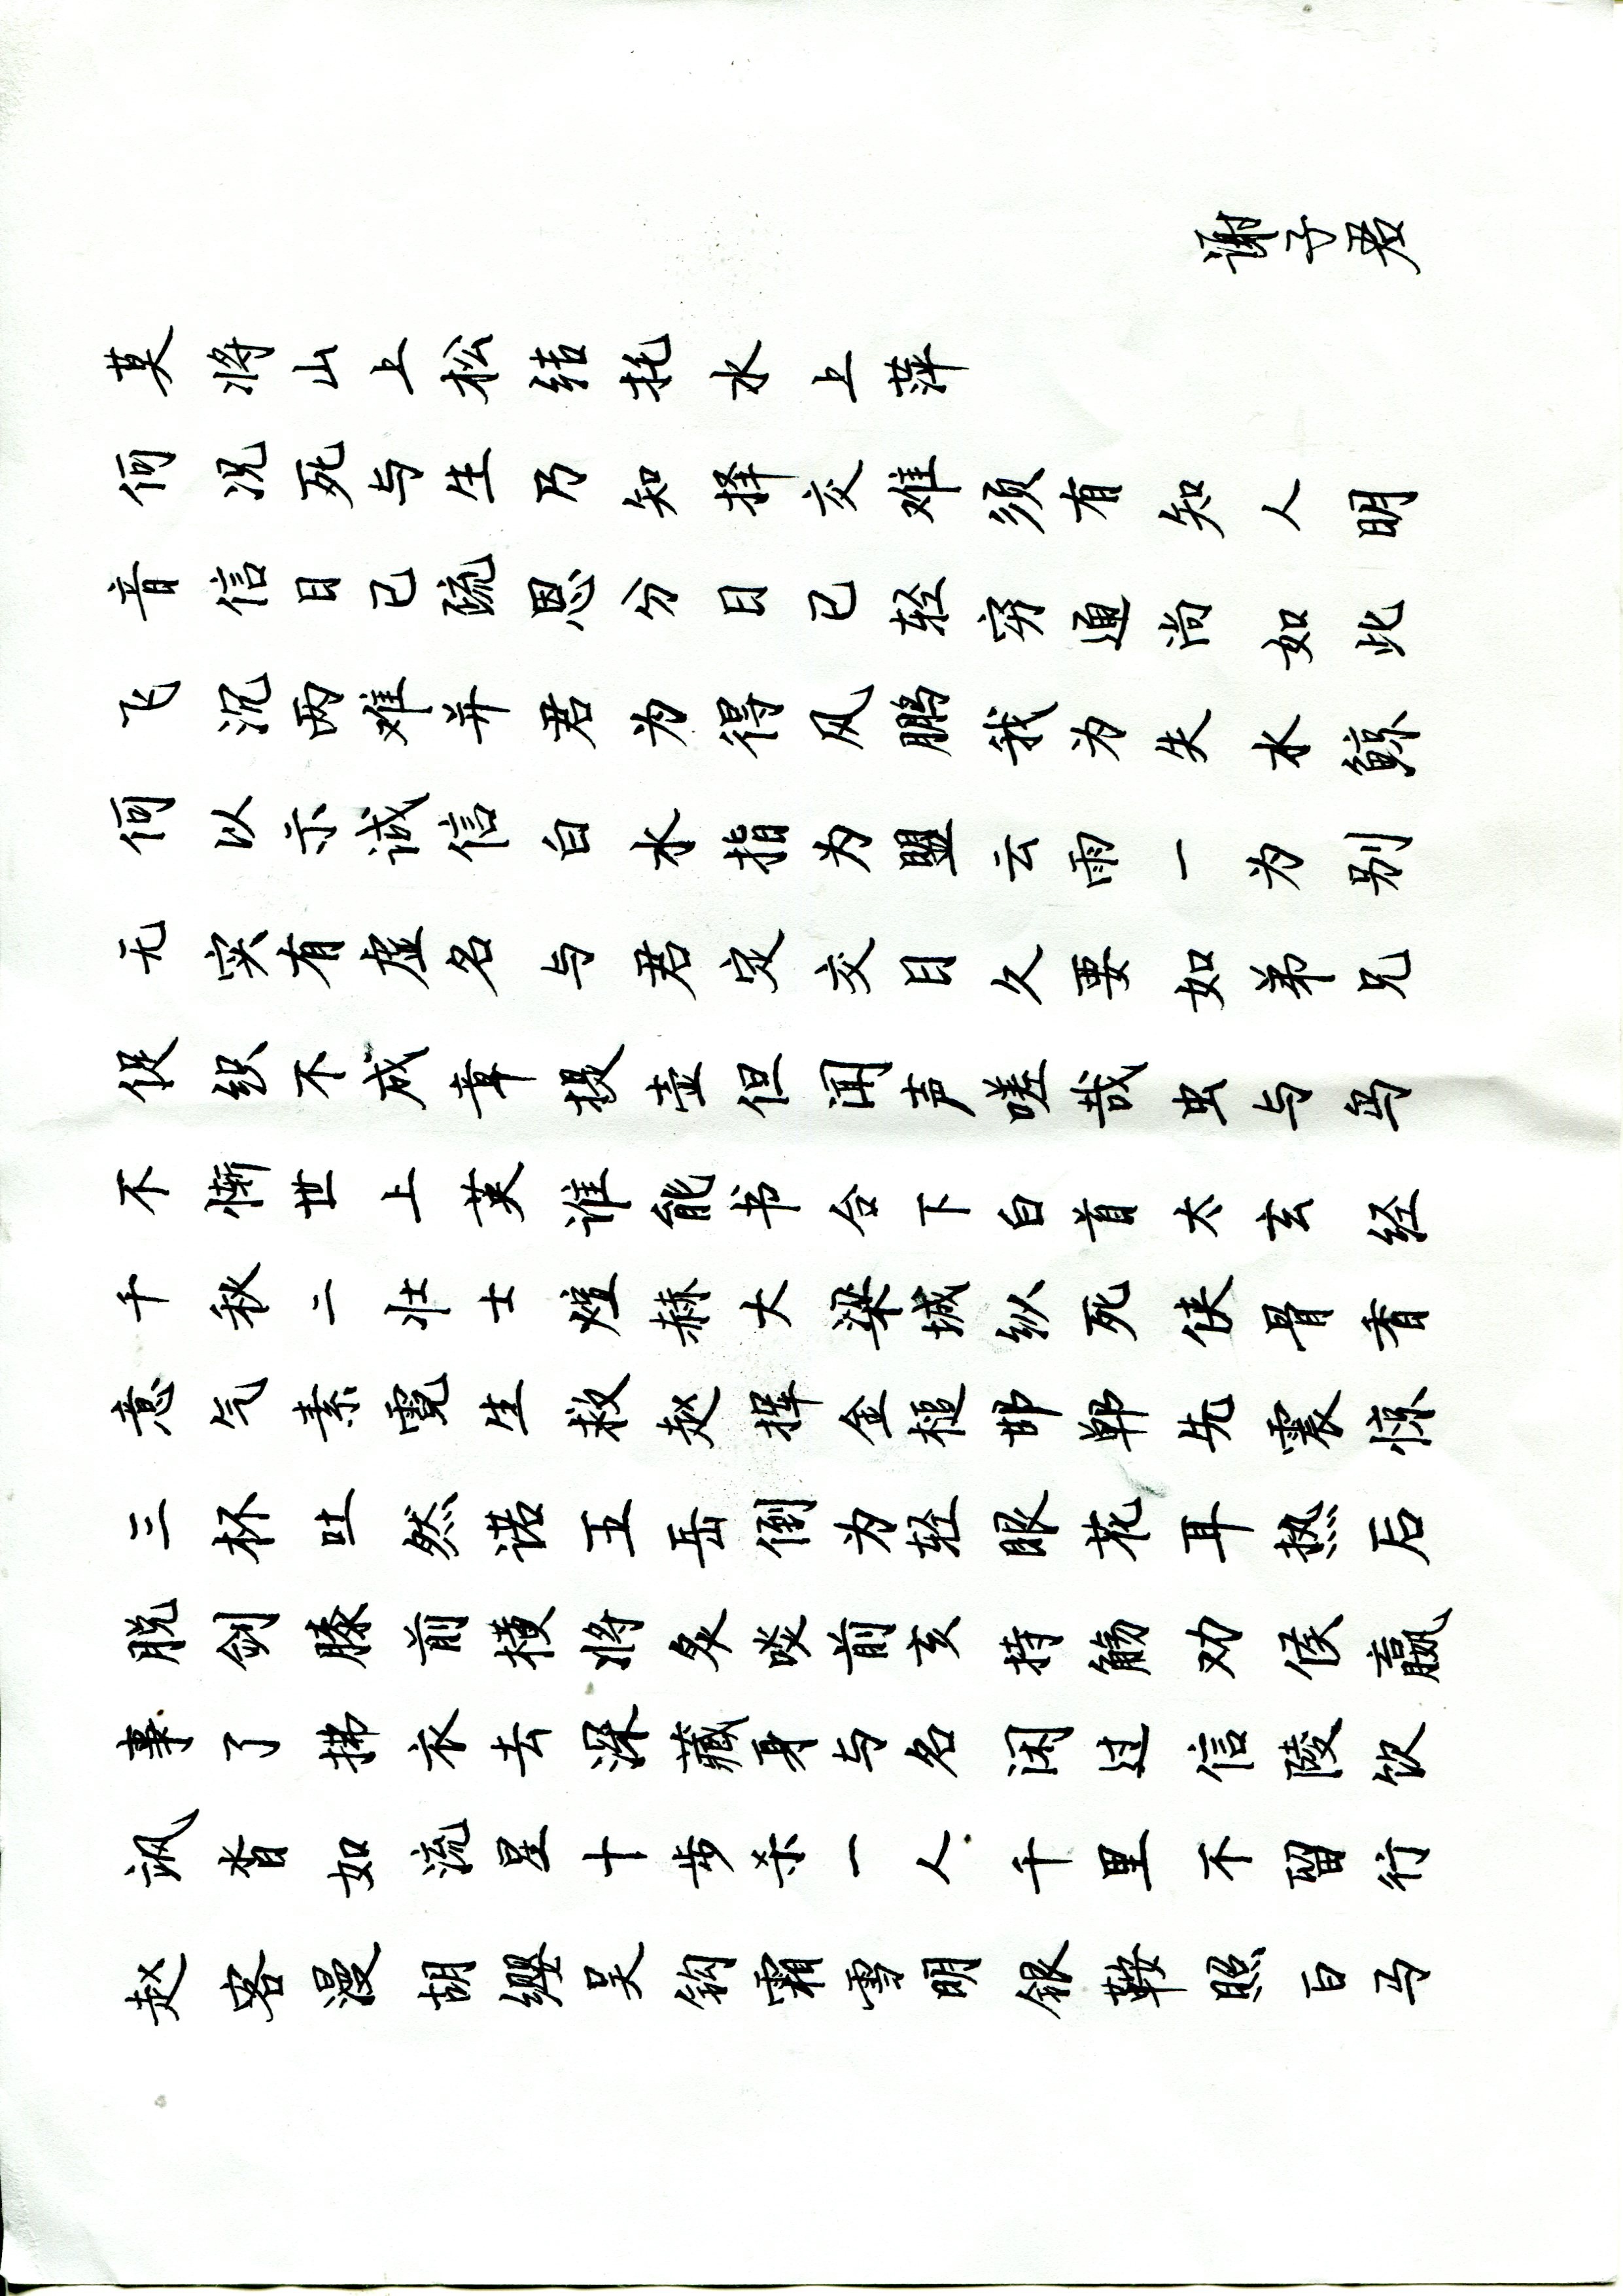 赵客漫胡缨吴钩霜雪明银鞍照白马
飒沓如流星十步杀一人千里不留行
事了拂衣去深藏身与名闲过信陵饮
脱剑膝前横将炙啖前亥持觞劝侯嬴
三杯吐然诺五岳倒为轻眼花耳热后
意气素霓生救赵挥金槌邯郸先震惊
千秋二壮士煊赫大梁城纵死侠骨香
不惭世上英谁能书合下白首太玄经
促织不成章提壶但闻声嗟哉虫与鸟
无实有虚名与君定交日久要如弟兄
何以示诚信白水指为盟云雨一为别
飞沉两难并君为得风鹏我为失水鲸
音信日已疏恩分日已轻穷通尚如此
何况死与生乃知择交难须有知人明
莫将山上松结托水上萍
谢子君